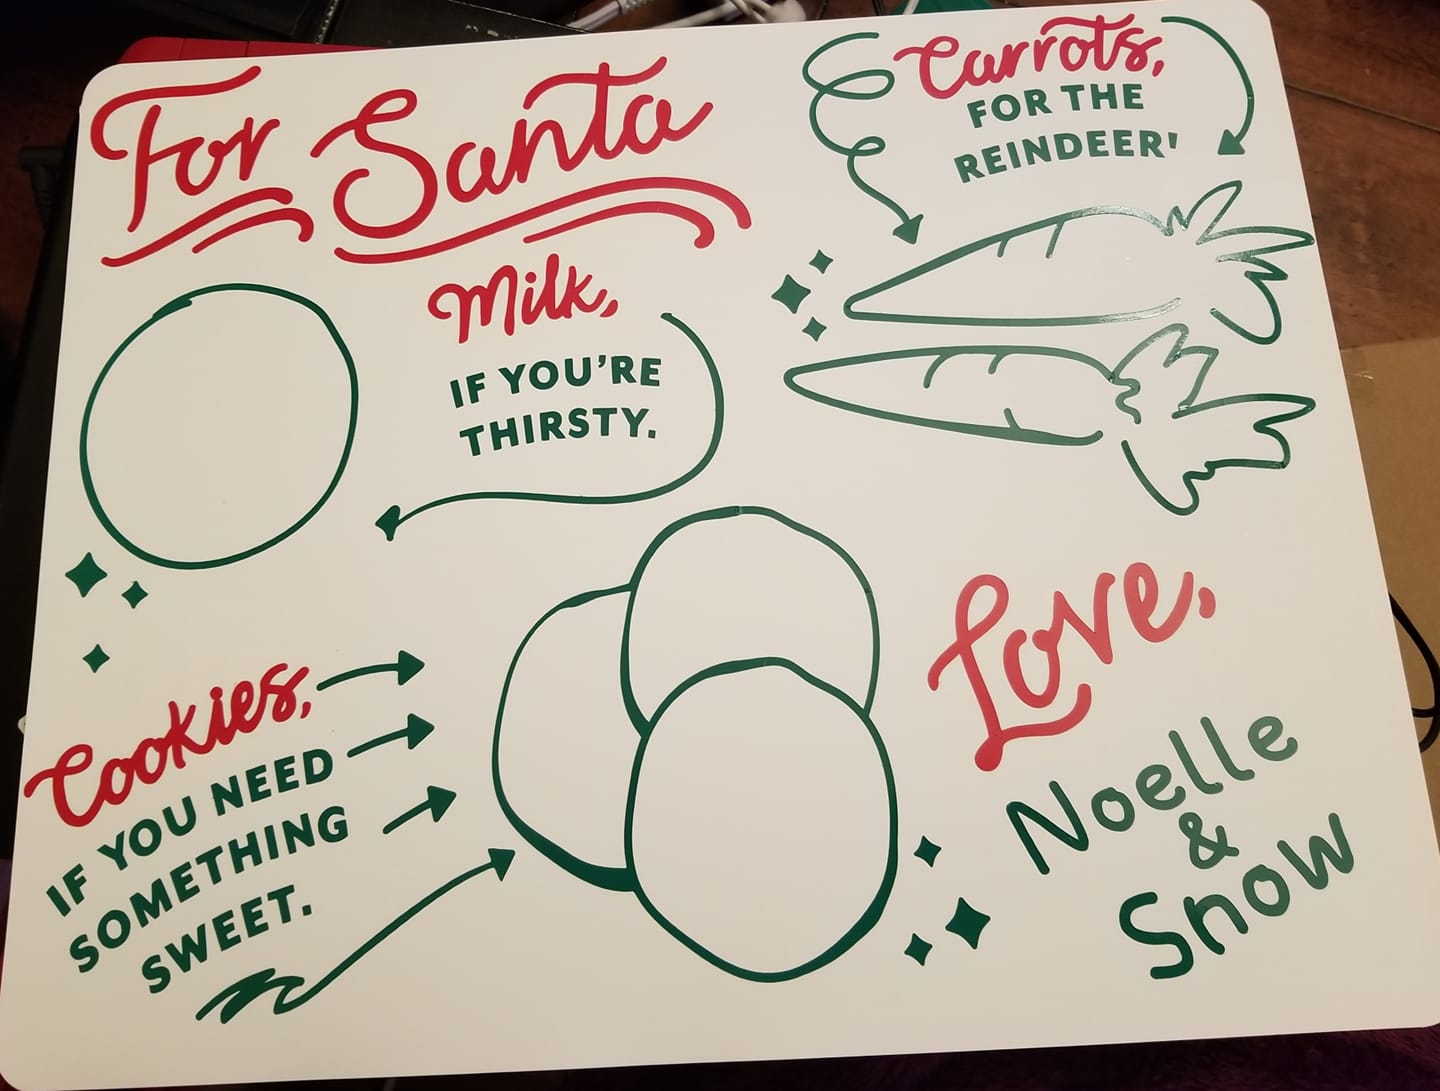 For Santa
Carrots,
FOR THE
REINDEER'
Milk,
IF YOU'RE
THIRSTY.
Cookies,
IF YOU NEED
SOMETHING
SWEET.
Love,
Noelle
&
Snow